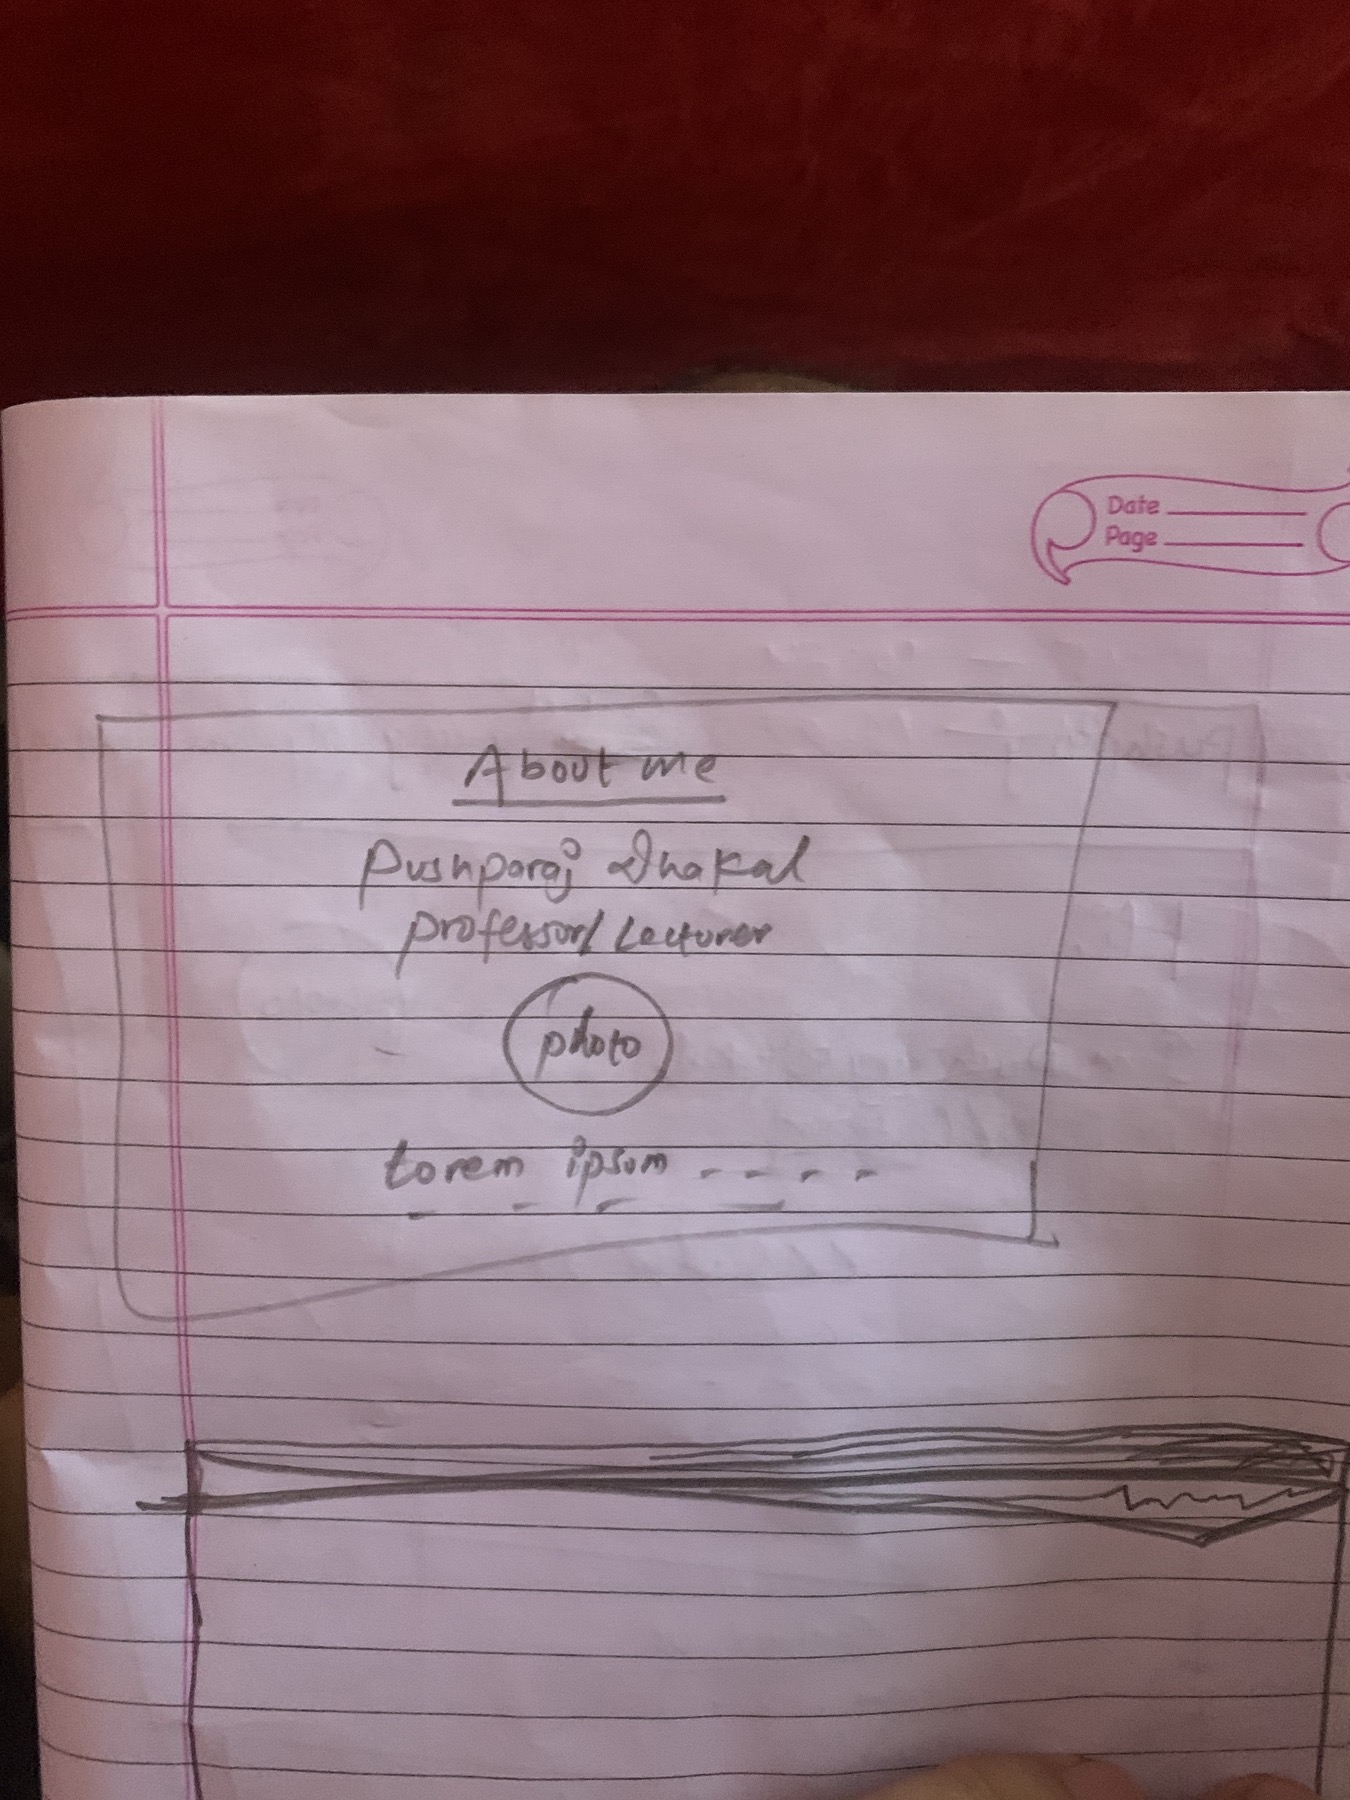 Date
Page
About me
Pushparaj Dhakal
professor/ Lecturer
photo
Lorem ipsum - - - -